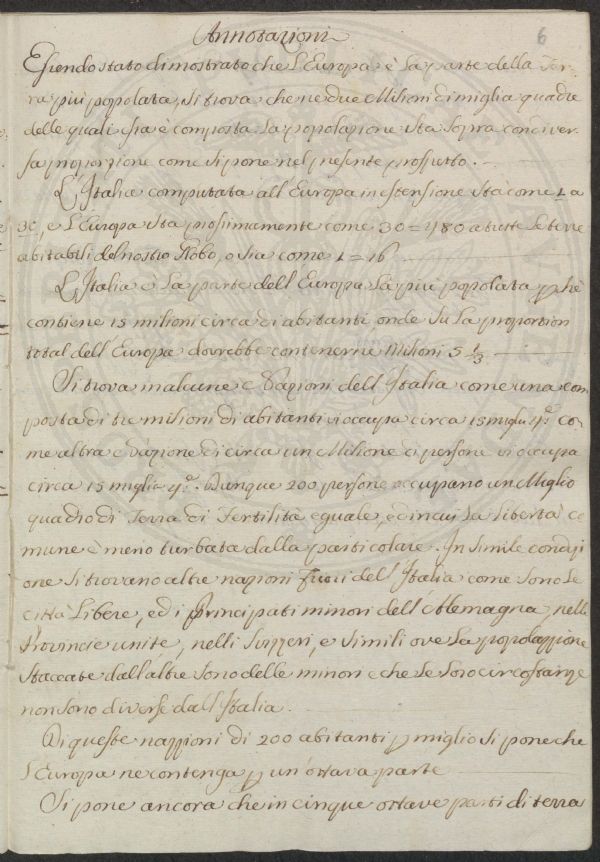 Annotazioni
6
Essendo stato dimostrato che l'Europa è la parte della Ter-
ra più popolata, si trova che ne due Milioni di miglia quadre
delle quali essa è composta la popolazione sta sopra con diver-
sa proporzione come si pone nel presente prospetto.
L'Italia computata all'Europa in estensione sta come 1 a
30, e l'Europa sta prossimamente come 30 = 480 a tutte le terre
abitabili del nostro Globo, o sia come 1 = 16
L'Italia è la parte dell'Europa la più popolata p chè
contiene 15 milioni circa di abitanti onde su la proportion
total dell'Europa dovrebbe contenerne Milioni 5 1/3
Si trova in alcune Nazioni dell'Italia come una com
posta di tre milioni di abitanti vi occupa circa 15 miglia q.e co-
me altra Nazione di circa un Milione di persone vi occupa
circa 15 miglia q.e. Dunque 200 persone occupano un Miglio
quadro di Terra di Fertilità eguale, ed in cui la libertà co
mune è meno turbata dalla particolare. In simile condizi
one si trovano altre nazioni fuori dell'Italia come sono le
città Libere, ed i Principati minori dell'Alemagna, nelle
Provincie unite, nelli Svizzeri, e simili ove la popolazzione
staccate dall'altre sono delle minori e che le loro circostanze
non sono diverse dall'Italia.
Di queste nazzioni di 200 abitanti p miglio si pone che
l'Europa ne contenga p un'ottava parte
Si pone ancora che in cinque ottave parti di terra